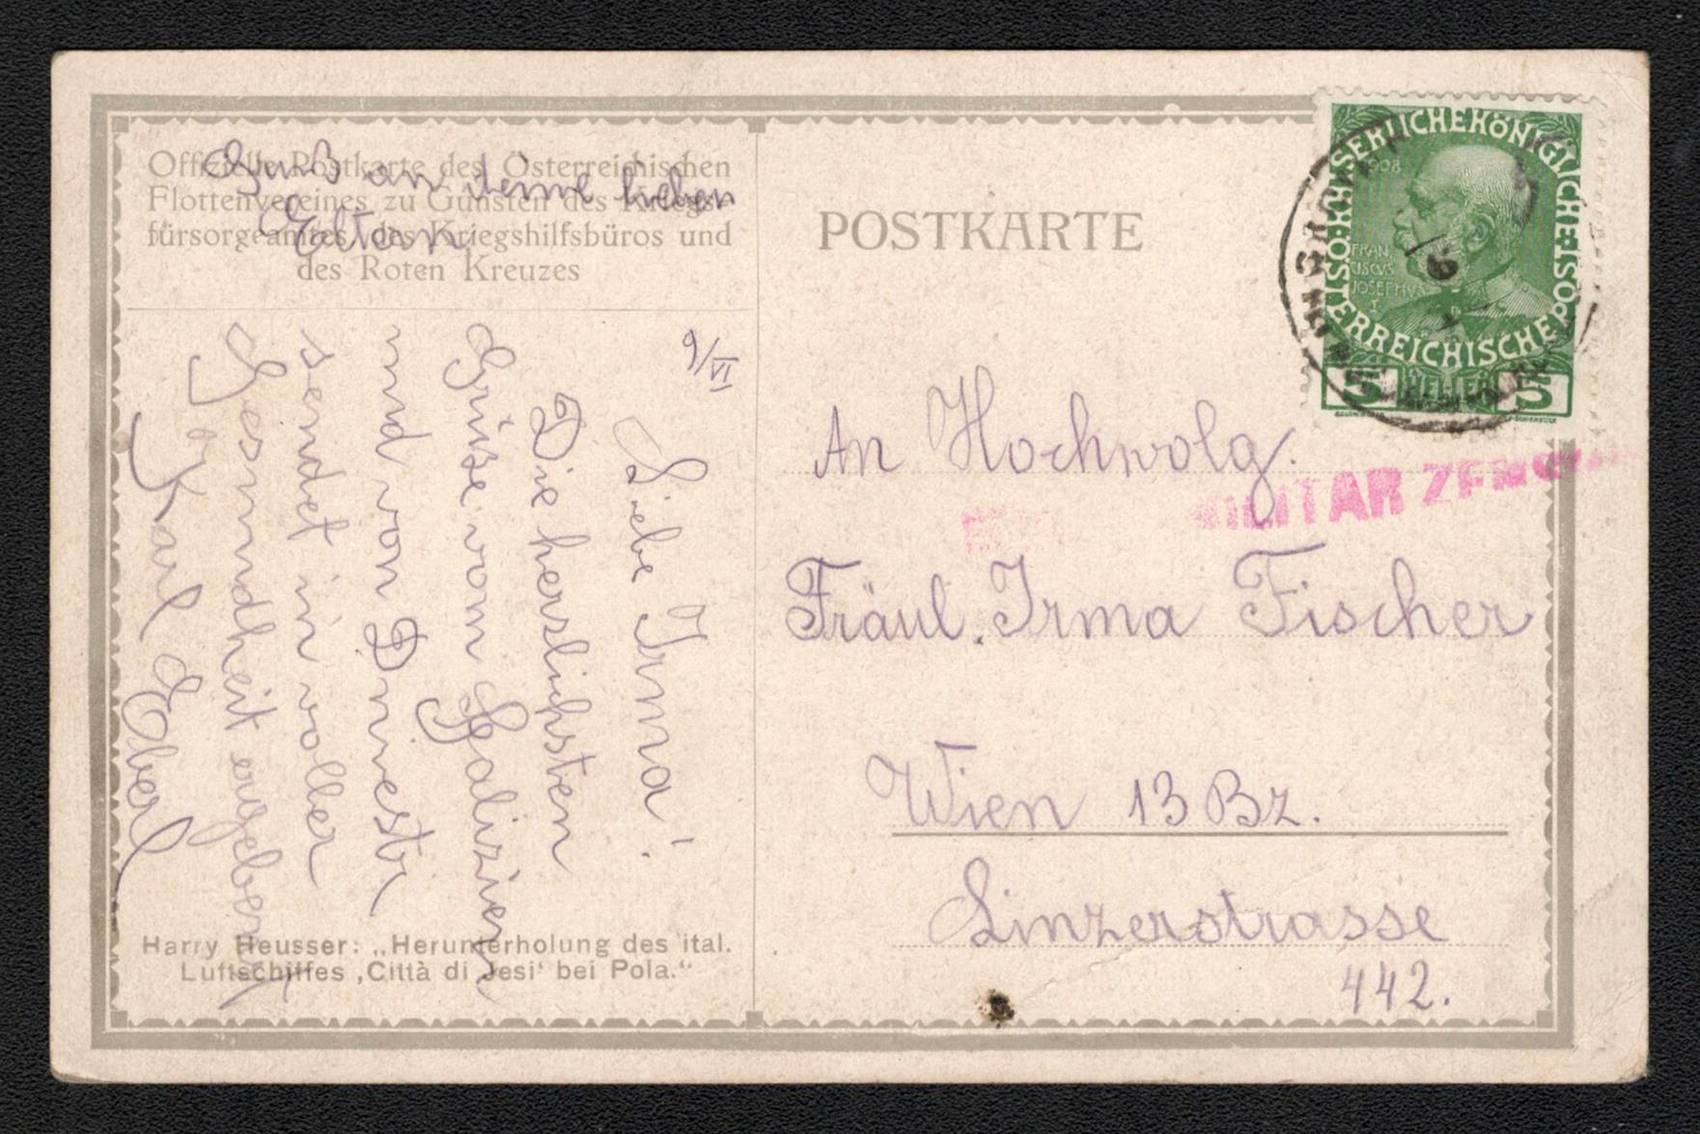 Offizielle Postkarte des Österreichischen
Flottenvereines zu Gunsten des Kriegs-
fürsorgeamtes, des Kriegshilfsbüros und
des Roten Kreuzes
Gruß an deine lieben
Eltern
9/VI
Liebe Irma!
Die herslichsten
Grüse vom Galizien
und von Dniestr
sendet in voller
Gesundheit
Karl Eberl
Harry Heusser: „Herunterholung des ital.
Luftschiffes ‚Città di Jesi‘ bei Pola.“
POSTKARTE
KAISERLICHEKÖNIGLICHE
ÖSTERREICHISCHE POST
1908
FRAN
CISCVS
JOSEPHVS
I
5 HELLER 5
MILITÄR ZENSUR
An Hochwolg.
Fräul. Irma Fischer
Wien 13 Bz.
Linzerstrasse
442.